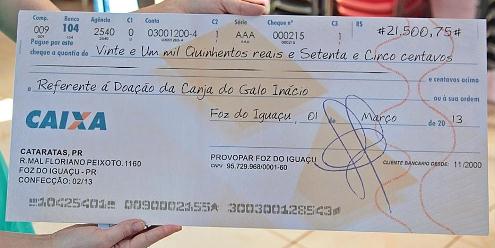 Comp. Banco Agência C1 Conta C2 Série Cheque nº C3 R$
009 104 2540 0 03001200-4 1 AAA 000215 1 #21,500,75#
Pague por este
cheque a quantia de Vinte e Um mil Quinhentos reais e Setenta e Cinco centavos
e centavos acima
a Referente á Doação da Canja do Galo Inácio ou à sua ordem
Foz do Iguaçu, 01 de Março de 20 13
CAIXA
CATARATAS, PR
R.MAL FLORIANO PEIXOTO, 1160
FOZ DO IGUAÇU - PR
CONFECÇÃO: 02/13
PROVOPAR FOZ DO IGUAÇU
CNPJ 95.729.968/0001-60
CLIENTE BANCARIO DESDE: 11/2000
10425401 0090002155A 300300128543